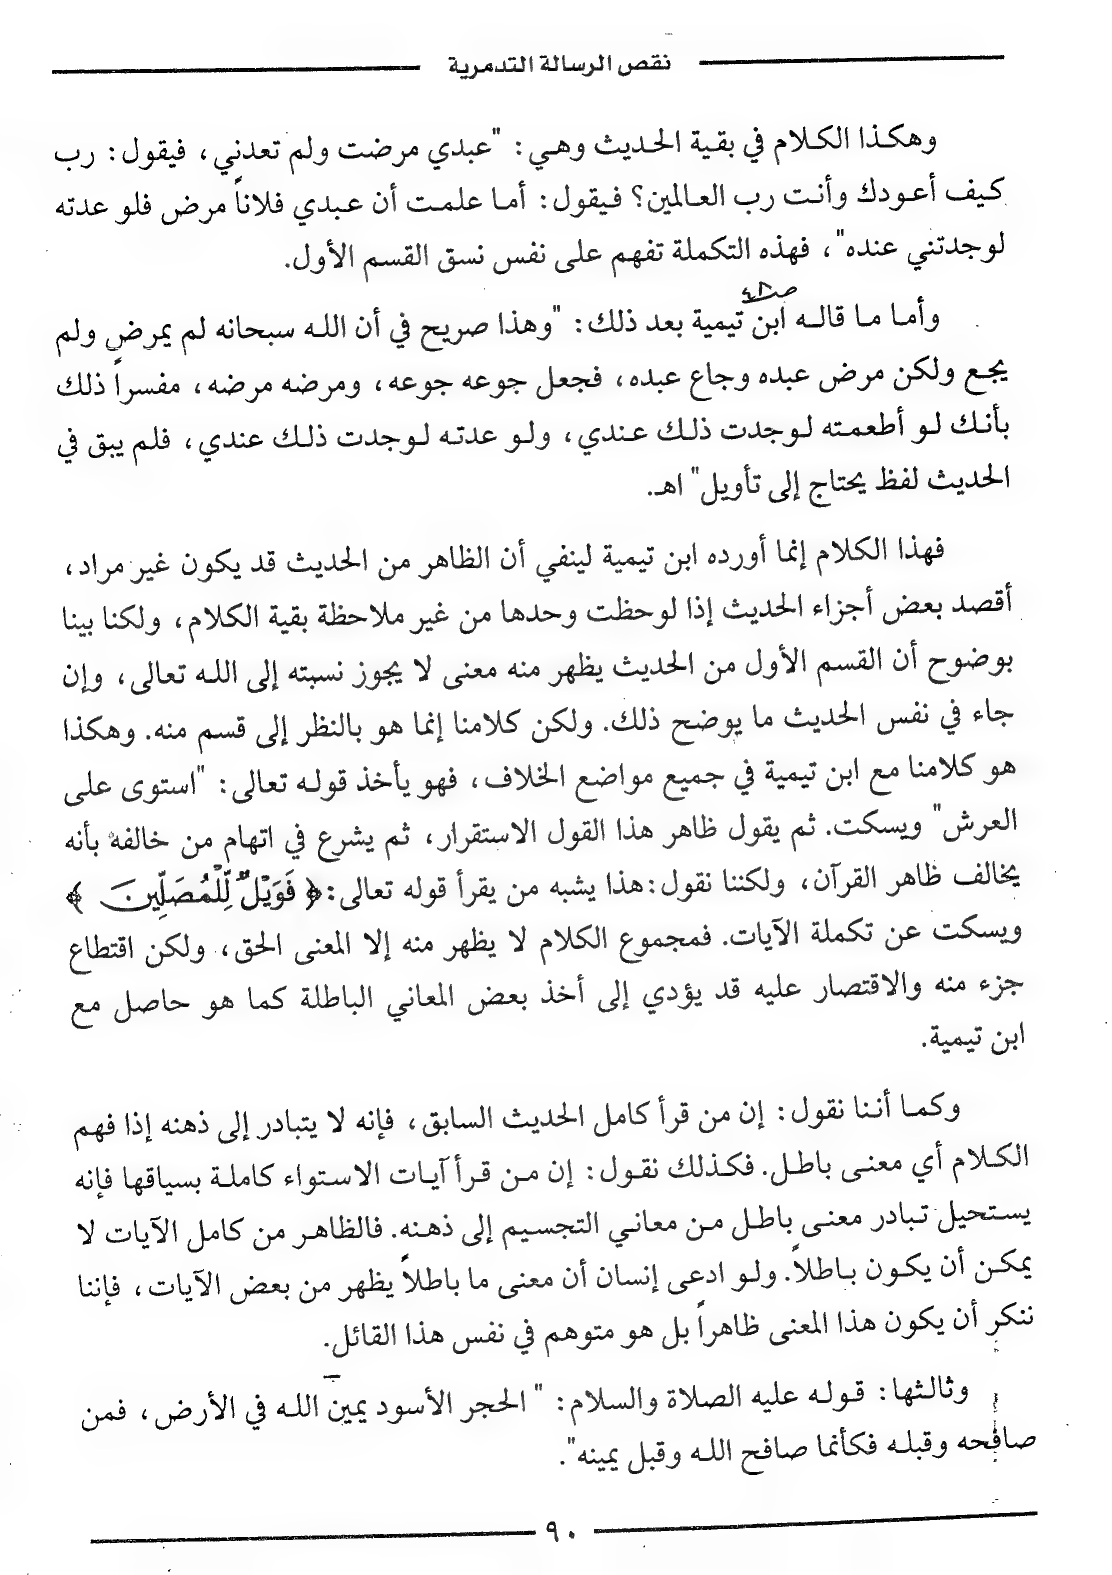 نقض الرسالة التدمرية
وهكذا الكلام في بقية الحديث وهي: "عبدي مرضت ولم تعدني، فيقول: رب
كيف أعودك وأنت رب العالمين؟ فيقول: أما علمت أن عبدي فلاناً مرض فلو عدته
لوجدتني عنده"، فهذه التكملة تفهم على نفس نسق القسم الأول.
وأما ما قاله ابن تيمية بعد ذلك: "وهذا صريح في أن الله سبحانه لم يمرض ولم
يجع ولكن مرض عبده وجاع عبده، فجعل جوعه جوعه، ومرضه مرضه، مفسراً ذلك
بأنك لو أطعمته لوجدت ذلك عندي، ولو عدته لوجدت ذلك عندي، فلم يبق في
الحديث لفظ يحتاج إلى تأويل" اهـ.
فهذا الكلام إنما أورده ابن تيمية لينفي أن الظاهر من الحديث قد يكون غير مراد،
أقصد بعض أجزاء الحديث إذا لوحظت وحدها من غير ملاحظة بقية الكلام، ولكنا بينا
بوضوح أن القسم الأول من الحديث يظهر منه معنى لا يجوز نسبته إلى الله تعالى، وإن
جاء في نفس الحديث ما يوضح ذلك. ولكن كلامنا إنما هو بالنظر إلى قسم منه. وهكذا
هو كلامنا مع ابن تيمية في جميع مواضع الخلاف، فهو يأخذ قوله تعالى: "استوى على
العرش" ويسكت. ثم يقول ظاهر هذا القول الاستقرار، ثم يشرع في اتهام من خالفه بأنه
يخالف ظاهر القرآن، ولكننا نقول: هذا يشبه من يقرأ قوله تعالى: ﴿ فَوَيْلٌ لِّلْمُصَلِّينَ ﴾
ويسكت عن تكملة الآيات. فمجموع الكلام لا يظهر منه إلا المعنى الحق، ولكن اقتطاع
جزء منه والاقتصار عليه قد يؤدي إلى أخذ بعض المعاني الباطلة كما هو حاصل مع
ابن تيمية.
وكما أننا نقول: إن من قرأ كامل الحديث السابق، فإنه لا يتبادر إلى ذهنه إذا فهم
الكلام أي معنى باطل. فكذلك نقول: إن من قرأ آيات الاستواء كاملة بسياقها فإنه
يستحيل تبادر معنى باطل من معاني التجسيم إلى ذهنه. فالظاهر من كامل الآيات لا
يمكن أن يكون باطلاً. ولو ادعى إنسان أن معنى ما باطلاً يظهر من بعض الآيات، فإننا
ننكر أن يكون هذا المعنى ظاهراً بل هو متوهم في نفس هذا القائل.
وثالثها: قوله عليه الصلاة والسلام: "الحجر الأسود يمين الله في الأرض، فمن
صافحه وقبله فكأنما صافح الله وقبل يمينه".
٩٠